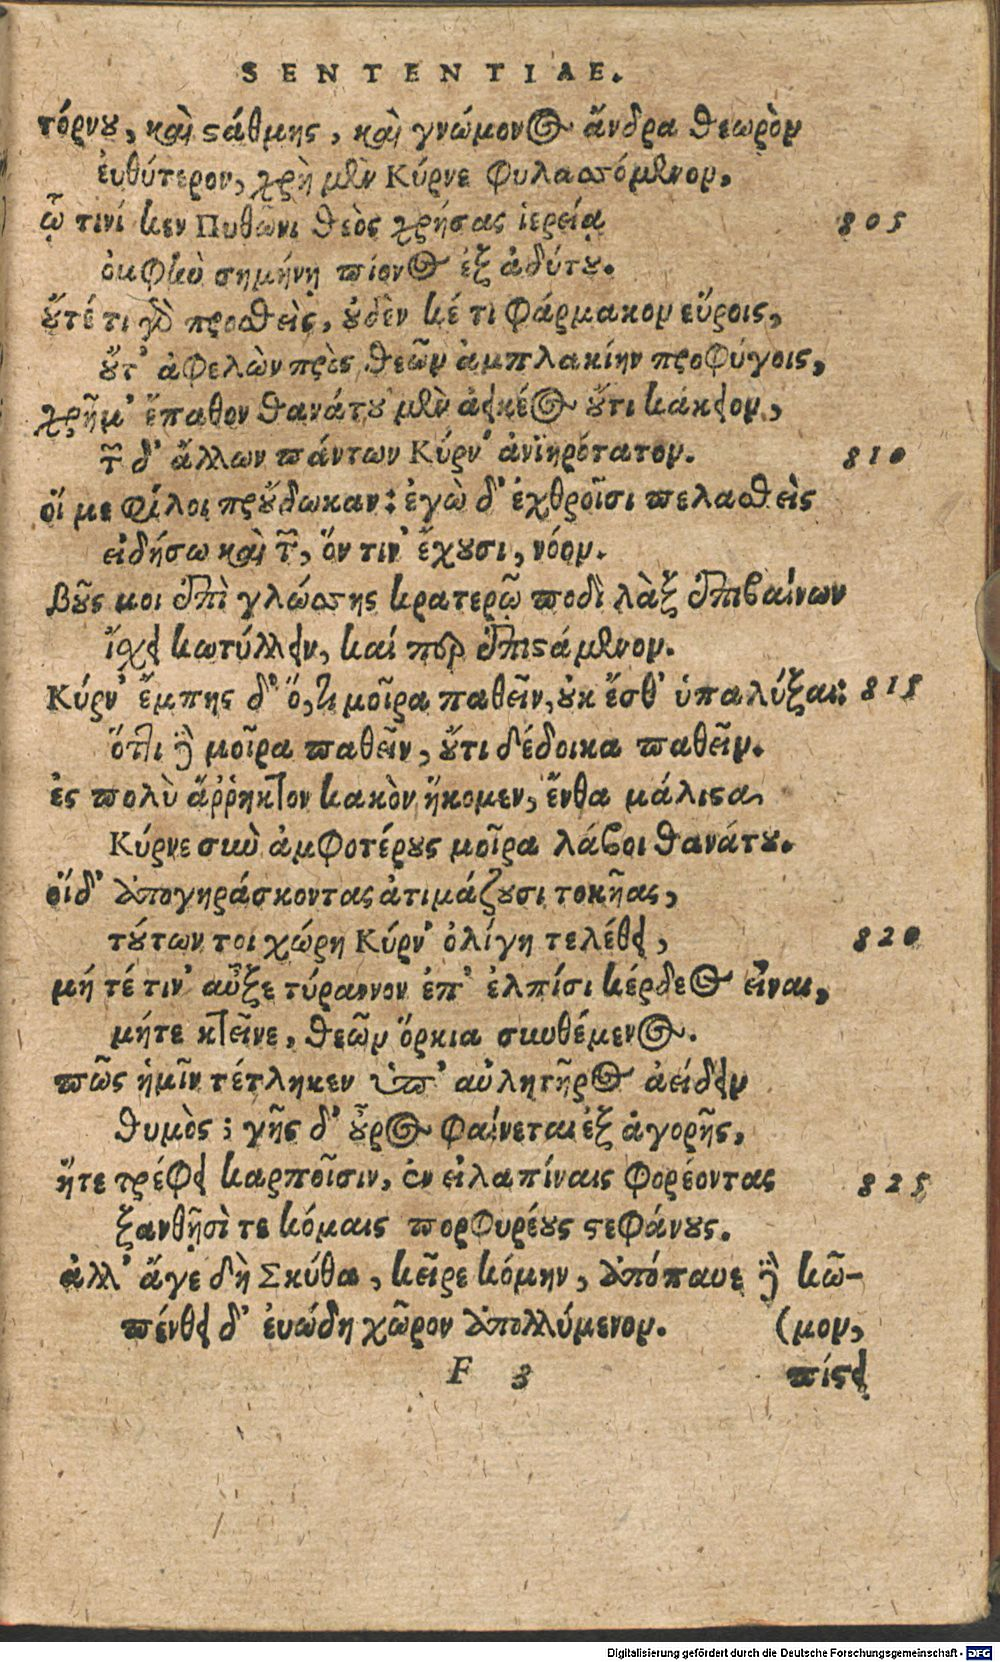 SENTENTIAE.
τόρνου, καὶ στάθμης, καὶ γνώμονος ἄνδρα θεωρὸν
ἐυθύτερον, χρὴ μὲν Κύρνε φυλασσόμενον,
ᾧ τινί κεν Πυθῶνι θεὸς χρήσας ἱερείᾳ 805
ὀμφὴν σημήνῃ πίονος ἐξ ἀδύτου.
οὔτέ τι γὰρ προσθεὶς, οὐδὲν κέ τι φάρμακον εὕροις,
οὔτ' ἀφελὼν πρὸς θεῶν ἀμπλακίην προφύγοις,
χρῆμ' ἔπαθον θανάτου μὲν ἀεικέος οὔτι κάκειον,
τῶν δ' ἄλλων πάντων Κύρν' ἀνιηρότατον. 810
οἵ με φίλοι προὔδωκαν: ἐγὼ δ' ἐχθροῖσι πελασθεὶς
εἰδήσω καὶ τῶν, ὅν τιν' ἔχουσι, νόον.
βοῦς μοι ἐπὶ γλώσσης κρατερῶ ποδὶ λὰξ ἐπιβαίνων
ἴχει κωτίλλειν, καί περ ἐπιστάμενον.
Κύρν' ἔμπης δ' ὅ,τι μοῖρα παθεῖν, οὐκ ἔσθ' ὑπαλύξαι: 815
ὅττι δὲ μοῖρα παθεῖν, οὔτι δέδοικα παθεῖν.
ἐς πολὺ ἄῤῥηκτον κακὸν ἥκομεν, ἔνθα μάλιστα
Κύρνε σὺν ἀμφοτέρους μοῖρα λάβοι θανάτου.
οἵδ' ἀπογηράσκοντας ἀτιμάζουσι τοκῆας,
τούτων τοι χώρη Κύρν' ὀλίγη τελέθει, 820
μή τέ τιν' αὖξε τύραννον ἐπ' ἐλπίσι κέρδεος εἶναι,
μήτε κτεῖνε, θεῶν ὅρκια συνθέμενος.
πῶς ἡμῖν τέτληκεν ὑπ' αὐλητῆρος ἀείδειν
θυμὸς; γῆς δ' οὖρος φαίνεται ἐξ ἀγορῆς,
ἥτε τρέφει καρποῖσιν, ἐν εἰλαπίναις φορέοντας 825
ξανθῇσὶ τε κόμαις πορφυρέους στεφάνους.
ἀλλ' ἄγε δὴ Σκύθα, κεῖρε κόμην, ἀπόπαυε δὲ κῶ-
πένθει δ' ἐυώδη χῶρον ἀπολλύμενον. (μον,
F 3 πίστει